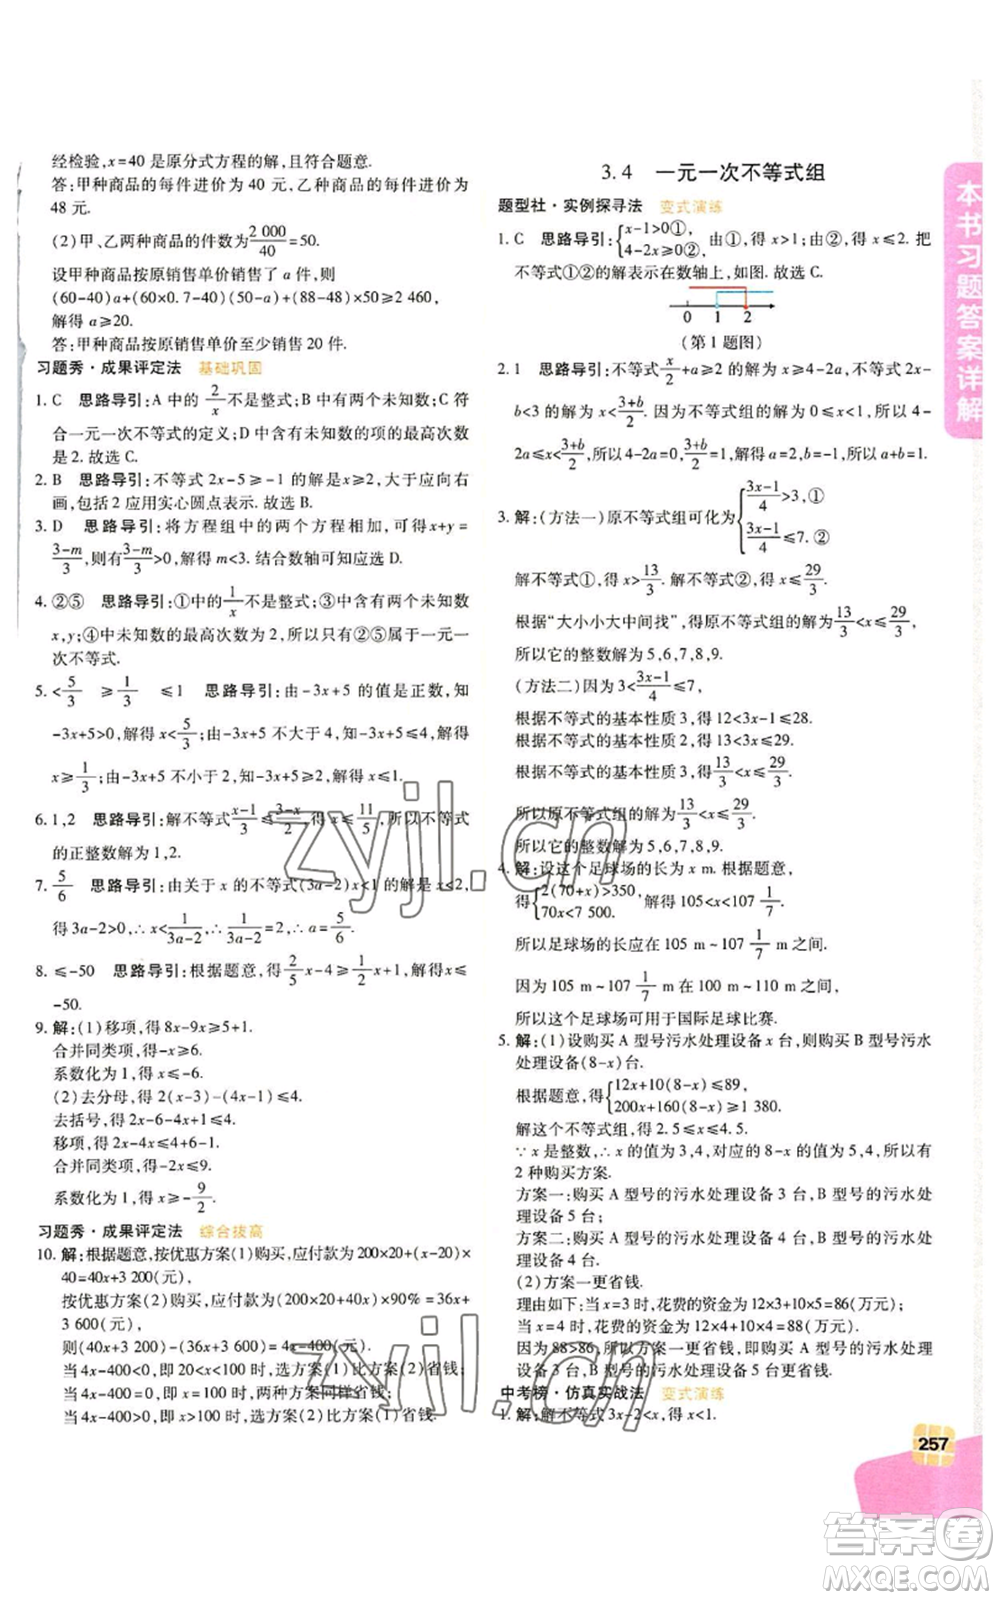 经检验,x=40 是原分式方程的解,且符合题意.
答:甲种商品的每件进价为 40 元,乙种商品的每件进价为
48 元.
(2)甲、乙两种商品的件数为2 000/40=50.
设甲种商品按原销售单价销售了 a 件,则
(60-40)a+(60×0.7-40)(50-a)+(88-48)×50≥2 460,
解得 a≥20.
答:甲种商品按原销售单价至少销售 20 件.
习题秀·成果评定法 基础巩固
1. C 思路导引:A 中的 2/x 不是整式;B 中有两个未知数;C 符
合一元一次不等式的定义;D 中含有未知数的项的最高次数
是 2. 故选 C.
2. B 思路导引:不等式 2x-5≥-1 的解是 x≥2,大于应向右
画,包括 2 应用实心圆点表示. 故选 B.
3. D 思路导引:将方程组中的两个方程相加,可得 x+y=
(3-m)/3,则有(3-m)/3>0,解得 m<3. 结合数轴可知应选 D.
4. ②⑤ 思路导引:①中的1/x不是整式;③中有两个未知数
x,y;④中未知数的最高次数为 2,所以②⑤属于一元一
次不等式.
5. <5/3 ≥1/3 ≤1 思路导引:由-3x+5 的值是正数,知
-3x+5>0,解得 x<5/3;由-3x+5 不大于 4,知-3x+5≤4,解得
x≥1/3;由-3x+5 不小于 2,知-3x+5≥2,解得 x≤1.
6. 1,2 思路导引:解不等式(x-1)/3≤(3-x)/2,得 x≤11/5,所以不等式
的正整数解为 1,2.
7. 5/6 思路导引:由关于 x 的不等式(3a-2)x<1 的解是 x<2,
得 3a-2>0,∴x<1/(3a-2),∴1/(3a-2)=2,∴a=5/6.
8. ≤-50 思路导引:根据题意,得2/5x-4≥1/2x+1,解得 x≤
-50.
9. 解:(1)移项,得 8x-9x≥5+1.
合并同类项,得-x≥6.
系数化为 1,得 x≤-6.
(2)去分母,得 2(x-3)-(4x-1)≤4.
去括号,得 2x-6-4x+1≤4.
移项,得 2x-4x≤4+6-1.
合并同类项,得-2x≤9.
系数化为 1,得 x≥-9/2.
习题秀·成果评定法 综合拔高
10. 解:根据题意,按优惠方案(1)购买,应付款为 200×20+(x-20)×
40=40x+3 200(元),
按优惠方案(2)购买,应付款为(200×20+40x)×90%=36x+
3 600(元),
则(40x+3 200)-(36x+3 600)=4x-400(元).
当 4x-400<0,即 20<x<100 时,选方案(1)比方案(2)省钱;
当 4x-400=0,即 x=100 时,两种方案同样省钱;
当 4x-400>0,即 x>100 时,选方案(2)比方案(1)省钱.
3.4 一元一次不等式组
题型社·实例探寻法 变式演练
1. C 思路导引:{x-1>0①, 4-2x≥0②, 由①,得 x>1,由②,得 x≤2. 把
不等式①②的解表示在数轴上,如图. 故选 C.
0 1 2
(第 1 题图)
2. 1 思路导引:不等式x/2+a≥2 的解为 x≥4-2a,不等式 2x-
b<3 的解为 x<(3+b)/2. 因为不等式组的解为 0≤x<1,所以 4-
2a≤x<(3+b)/2,所以 4-2a=0,(3+b)/2=1,解得 a=2,b=-1,所以 a+b=1.
3. 解:(方法一)原不等式组可化为{(3x-1)/4>3,① (3x-1)/4≤7.②
解不等式①,得 x>13/3. 解不等式②,得 x≤29/3.
根据“大小小大中间找”,得原不等式组的解为13/3<x≤29/3,
所以它的整数解为 5,6,7,8,9.
(方法二)因为 3<(3x-1)/4≤7,
根据不等式的基本性质 3,得 12<3x-1≤28.
根据不等式的基本性质 2,得13/3<x≤29/3.
所以原不等式组的解为13/3<x≤29/3.
所以它的整数解为 5,6,7,8,9.
4. 解:设这个足球场的长为 x m. 根据题意,
得{2(70+x)>350, 70x<7 500. 解得 105<x<107 1/7.
所以足球场的长应在 105 m~107 1/7 m 之间.
因为 105 m~107 1/7 m 在 100 m~110 m 之间,
所以这个足球场可用于国际足球比赛.
5. 解:(1)设购买 A 型号污水处理设备 x 台,则购买 B 型号污水
处理设备(8-x)台.
根据题意,得{12x+10(8-x)≤89, 200x+160(8-x)≥1 380.
解这个不等式组,得 2.5≤x≤4.5.
∵x 是整数,∴x 的值为 3,4,对应的 8-x 的值为 5,4,所以有
2 种购买方案.
方案一:购买 A 型号的污水处理设备 3 台,B 型号的污水处
理设备 5 台;
方案二:购买 A 型号的污水处理设备 4 台,B 型号的污水处
理设备 4 台.
(2)方案一更省钱.
理由如下:当 x=3 时,花费的资金为 12×3+10×5=86(万元);
当 x=4 时,花费的资金为 12×4+10×4=88(万元).
因为 88>86,所以方案一更省钱,即购买 A 型号的污水处理
设备 3 台,B 型号的污水处理设备 5 台更省钱.
中考榜·仿真实战法 变式演练
1. 解:解不等式 3x-2<x,得 x<1.
本书习题答案详解
257
zyjl.cn
zyjl.cn
答案卷
MXQE.COM